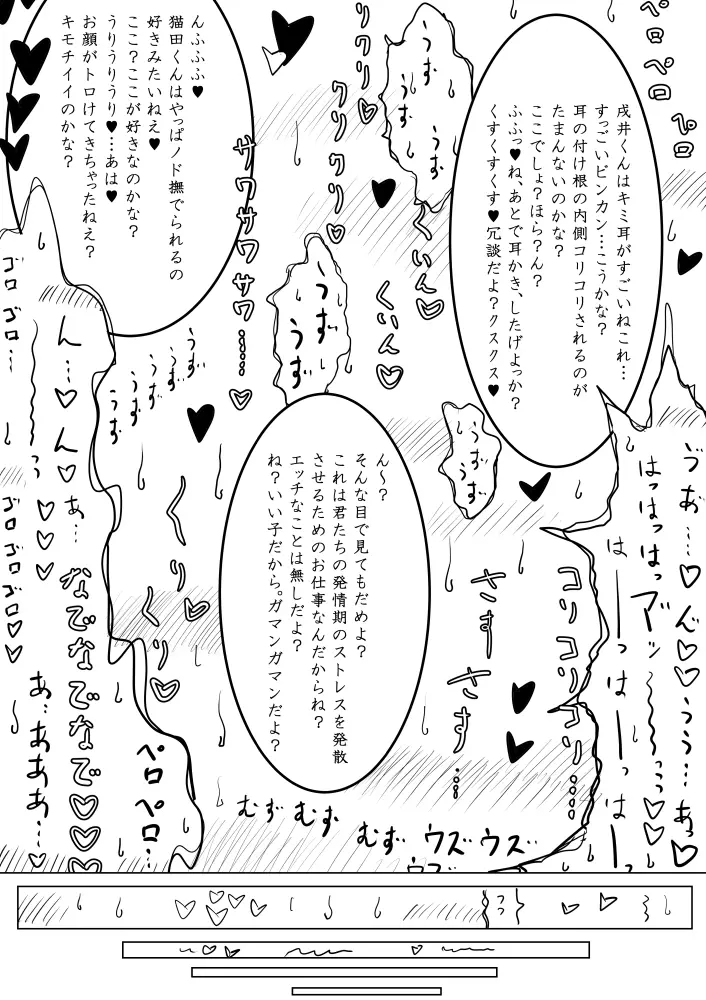 戌井くんはキミ耳がすごいねこれ…
すっごいビンカン…こうかな?
耳の付け根の内側コリコリされるのが
たまんないのかな?
ここでしょ?ほら?ん?
ふふっ♥ね、あとで耳かき、したげよっか?
くすくすくす♥冗談だよ?クスクス♥
んふふふ♥
猫田くんはやっぱノド撫でられるの
好きみたいねえ♥
ここ?ここが好きなのかな?
うりうりうり♥…あは♥
お顔がトロけてきちゃったねえ?
キモチイイのかな?
ん～?
そんな目で見てもだめよ?
これは君たちの発情期のストレスを発散
させるためのお仕事なんだからね?
エッチなことは無しだよ?
ね?いい子だから。ガマンガマンだよ?
ペロペロ
ペロ
うず
うず
うず
くいん♡
くいん♡
クリクリ♡
クリクリ♡
サワサワサワサワ……♡
うず
うず
うず
うず
うず
うず
うず
うず
うず
ん…♡ん♡あ…
ゴロゴロ…
ゴロゴロゴロ♡♡
くり♡
くり♡
なでなでなで♡♡♡
あ…あああ…♡
ペロペロ…
コリコリコリ……
さす
さす
さす…
はっはっはっ
はーーっはーーっはーーっ
むず
むず
むず
ウズウズ
ウズ
っっ